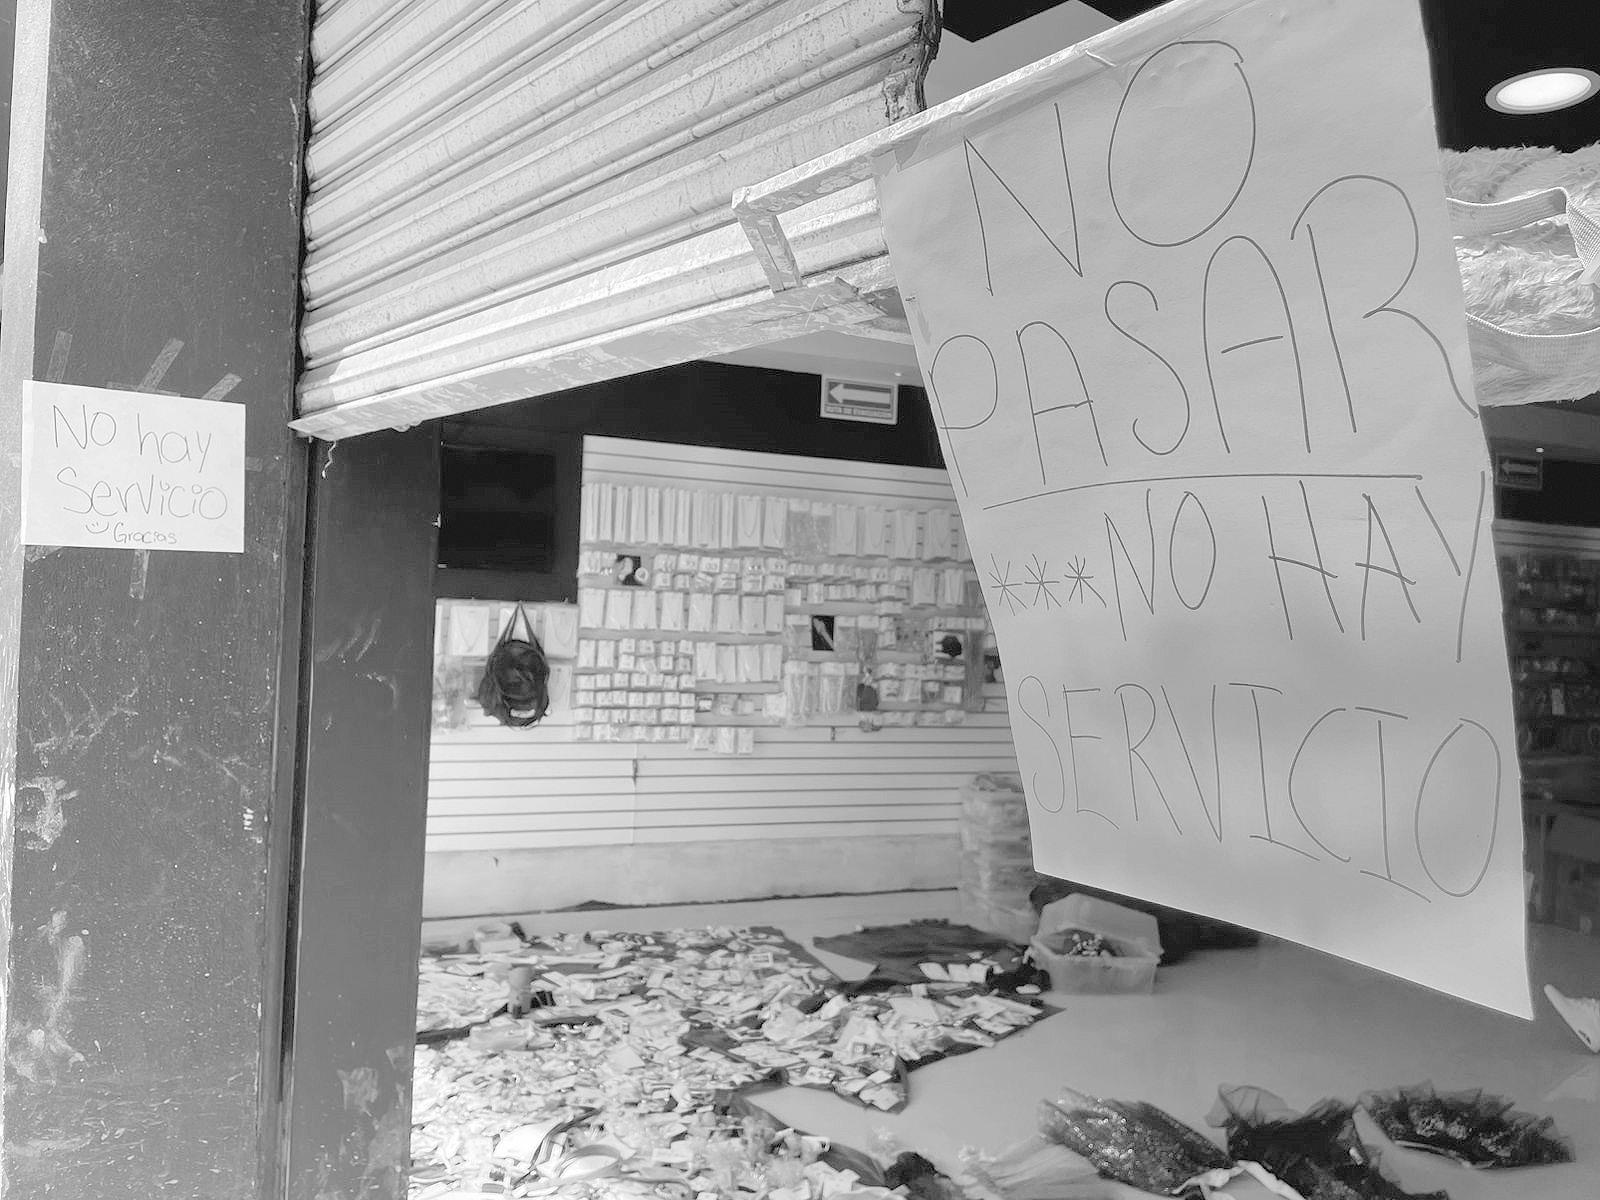 No hay
Servicio
Gracias
NO
PASAR
***NO HAY
SERVICIO
RUTA DE EVACUACIÓN